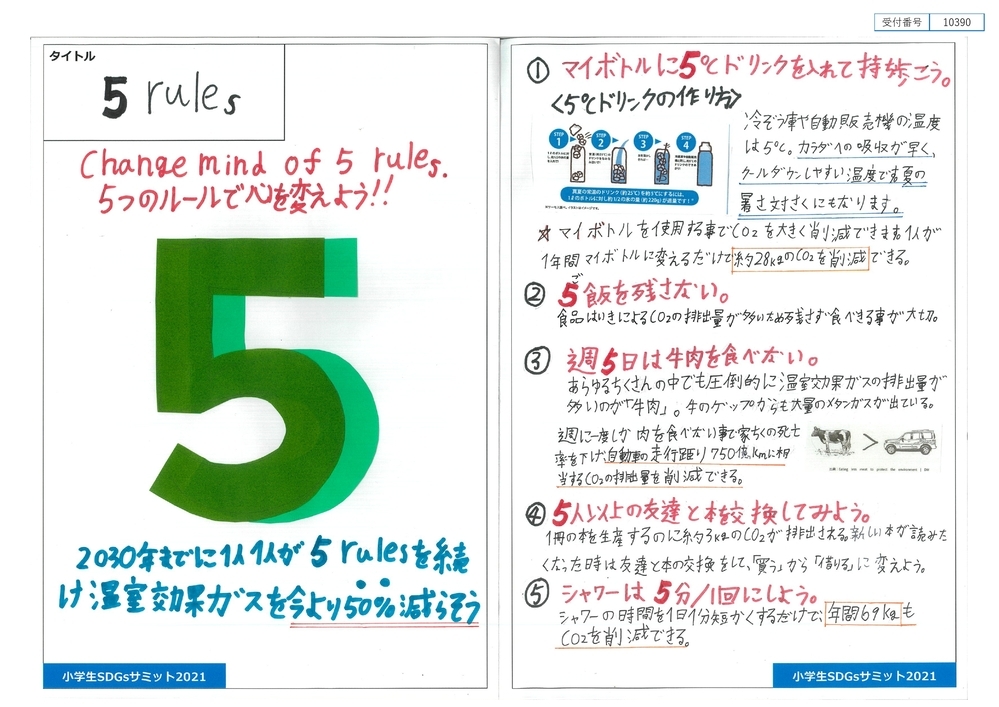 受付番号 10390
タイトル
5 rules
Change mind of 5 rules.
5つのルールで心を変えよう!!
5
2030年までに1人1人が 5 rulesを続
け温室効果ガスを今より50%減らそう
小学生SDGsサミット2021
① マイボトルに5℃ドリンクを入れて持歩こう。
<5℃ドリンクの作り方>
STEP 1 STEP 2 STEP 3 STEP 4
冷ぞう庫や自動販売機の温度
は5℃。カラダへの吸収が早く、
クールダウンしやすい温度で真夏の
暑さ対さくにもなります。
☆マイボトルを使用する事でCO2を大きく削減できます。1人が
1年間マイボトルに変えるだけで約28kgのCO2を削減できる。
② 5飯を残さない。
ご
食品はいきによるCO2の排出量が多いため残さず食べきる事が大切。
③ 週5日は牛肉を食べない。
あらゆるちくさんの中でも圧倒的に温室効果ガスの排出量が
多いのが「牛肉」。牛のゲップからも大量のメタンガスが出ている。
週に一度しか肉を食べない事で家ちくの死亡
率を下げ、自動車の走行距り750億kmに相
当するCO2の排出量を削減できる。
>
④ 5人以上の友達と本を交換してみよう。
1冊の本を生産するのに約3kgのCO2が排出される。新しい本が読みた
くなった時は友達と本の交換をして、「買う」から「借りる」に変えよう。
⑤ シャワーは 5分/1回にしよう。
シャワーの時間を1日1分短かくするだけで、年間69kgも
CO2を削減できる。
小学生SDGsサミット2021